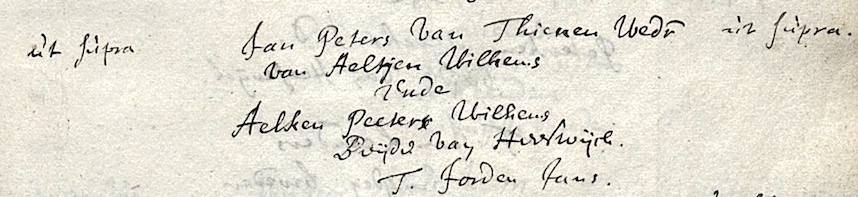 ut supra Jan Peters van Thienen Wedr ut supra.
van Aeltjen Wilhems
Ende
Aelken Peeters Wilhems
Beijde van
T. Jorden Jans.